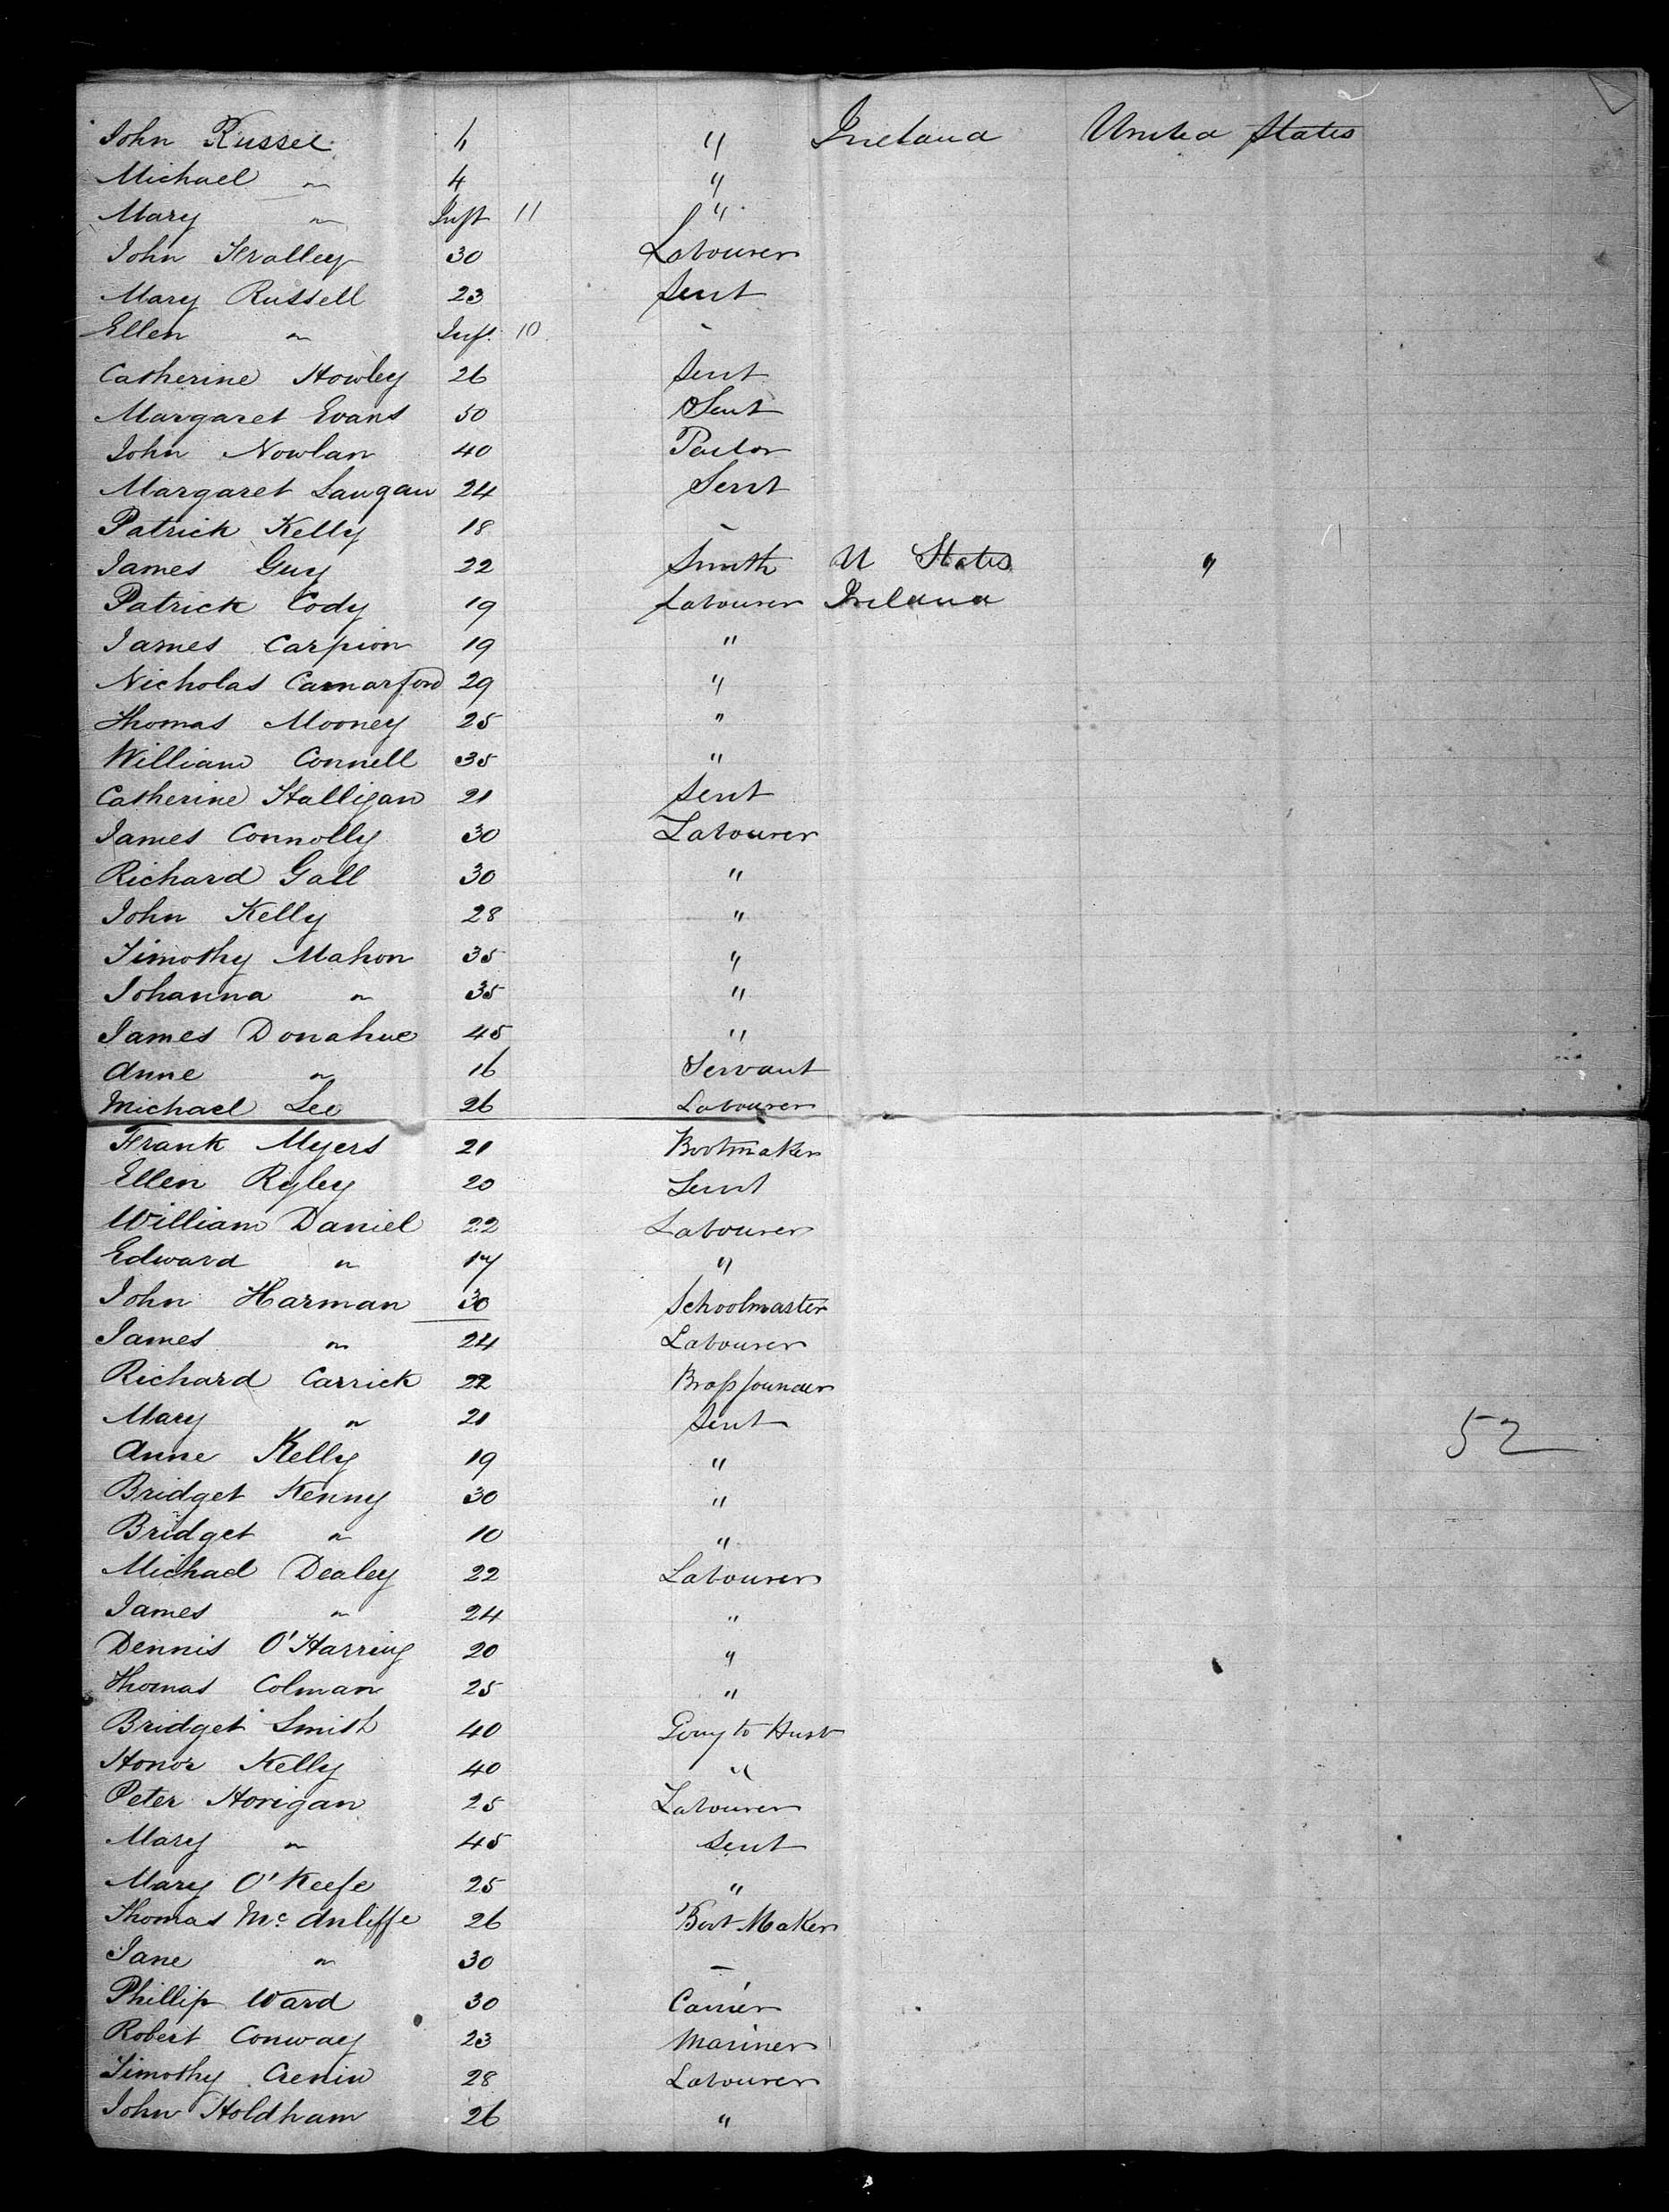 John Russel 4 " Ireland United States
Michael " 4 "
Mary " Inft 11 "
John 30 Labourer
Mary Russell 23 Servt
Ellen " Inft. 10 -
Catherine Howley 26 Servt
Margaret Evans 50 Servt
John Nowlan 40 Tailor
Margaret Langan 24 Servt
Patrick Kelly 18 -
James Guy 22 Smith U States "
Patrick Cody 19 Labourer Ireland
James Carpion 19 "
Nicholas 29 "
Thomas Mooney 25 "
William Connell 35 "
Catherine Halligan 21 Servt
James Connolly 30 Labourer
Richard Gall 30 "
John Kelly 28 "
Timothy Mahon 35 "
Johanna " 35 "
James Donahue 45 "
Anne " 16 Servant
Michael Lee 26 Labourer
Frank Myers 21 Bootmaker
Ellen Ryley 20 Servt
William Daniel 22 Labourer
Edward " 17 "
John Harman 30 Schoolmaster
James " 24 Labourer
Richard Carrick 22 Brassfounder
Mary " 21 Servt
52
Anne Kelly 19 "
Bridget Kenny 30 "
Bridget " 10 "
Michael Dealey 22 Labourer
James " 24 "
Dennis O'Harring 20 "
Thomas Colman 25 "
Bridget Smith 40 Going to Husb
Honor Kelly 40 "
Peter Horigan 25 Labourer
Mary " 45 Servt
Mary O'Keefe 25 "
Thomas McAuliffe 26 Boot Maker
Jane " 30 -
Phillip Ward 30 Carrier
Robert Conway 23 Mariner
Timothy Crenin 28 Labourer
John Holdham 26 "